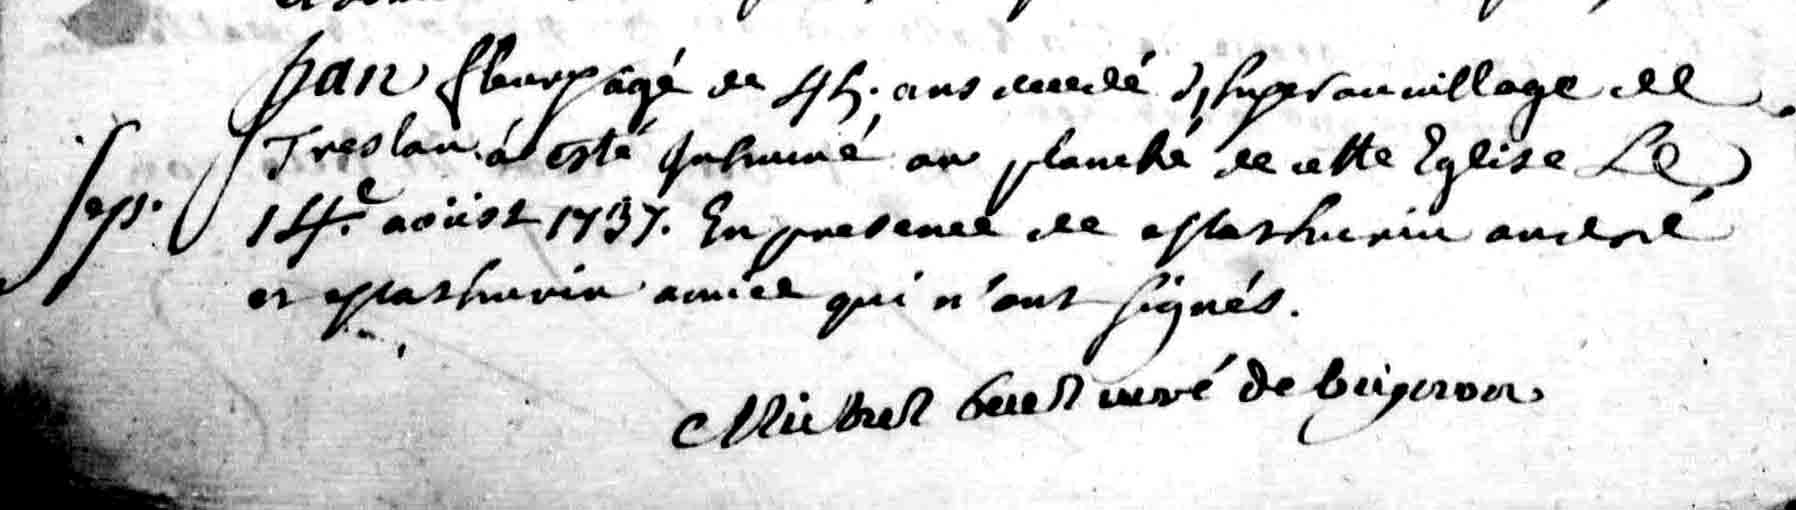 Jan fleury âgé de 45. ans decedé d'hyer au village de
Treslan á esté Inhumé au planché de cette Eglise Le
Sep. 14.e aoüist 1737. En presence de Mathurin André
et Mathurin amice qui n'ont signés.
Michel curé de